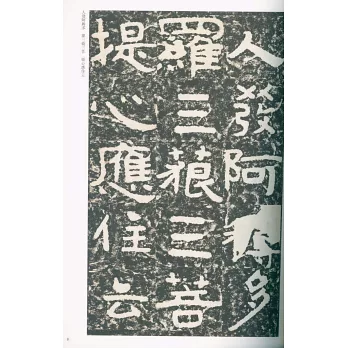 人發阿耨多
羅三藐三菩
提心應住云